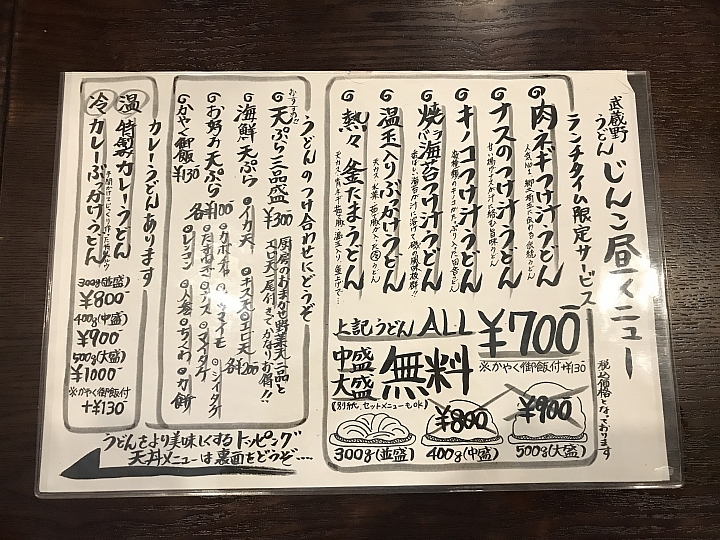 武蔵野うどん じんこ昼メニュー
税込価格となっております
ランチタイム限定サービス
肉ネギつけ汁うどん
人気No.1
ナスのつけ汁うどん
キノコつけ汁うどん
焼バラ海苔つけ汁うどん
温玉入りぶっかけうどん
熱々 釜たまうどん
上記うどん ALL ¥700
※かやく御飯付+¥130
中盛
大盛
無料
(別紙、セットメニューもOK)
300g(並盛)
¥800
400g(中盛)
¥900
500g(大盛)
うどんのつけ合わせにどうぞ
おすすめ
天ぷら三品盛 ¥300
厨房のおまかせ野菜天二品と
エロ天一尾付きでかなりお得!!
海鮮天ぷら
イカ天 キス天 エロ天 各¥200
お好み天ぷら 各¥100
カボチャ サツマイモ シイタケ
たまねぎ ナス マイタケ
レンコン 人参 ちくわ 力餅
かやく御飯 ¥130
カレーうどんあります
温 特製カレーうどん
冷 カレーぶっかけうどん
300g(並盛)
¥800
400g(中盛)
¥900
500g(大盛)
¥1000
※かやく御飯付
+¥130
うどんをより美味しくするトッピング
天丼メニューは裏面をどうぞ....